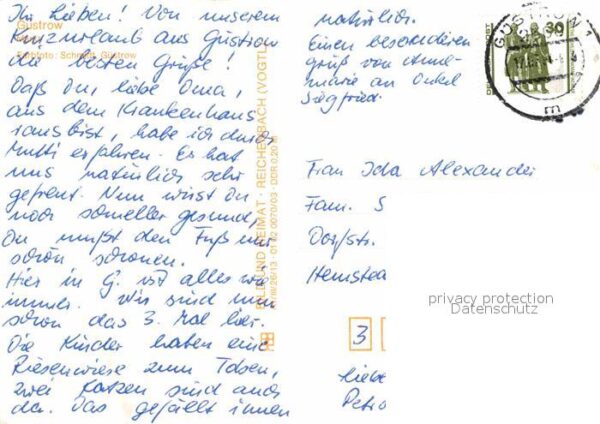 Ihr Lieben! Von unserem
Kurzurlaub aus Güstrow
die besten Grüße!
Daß Du, liebe Oma,
aus dem Krankenhaus
raus bist, habe ich durch
Mutti erfahren. Es hat
uns natürlich sehr
gefreut. Nun wirst Du
noch schneller gesund,
Du mußt den Fuß nur
schön schonen.
Hier in G. ist alles wie
immer. Wir sind nun
schon das 3. Mal hier.
Die Kinder haben eine
Riesenwiese zum Toben,
zwei Katzen sind auch
da. Das gefällt ihnen
natürlich.
Einen besonderen
gruß von Anne-
marie an Onkel
Siegfried.
Güstrow
Farbfoto: Schmidt, Güstrow
BILD UND HEIMAT · REICHENBACH (VOGTL
GÜSTROW 1
30
m
Frau Ida Alexander
Fam. S
Dorfstr.
Hemstea
privacy protection
Datenschutz
3
liebe
Petra